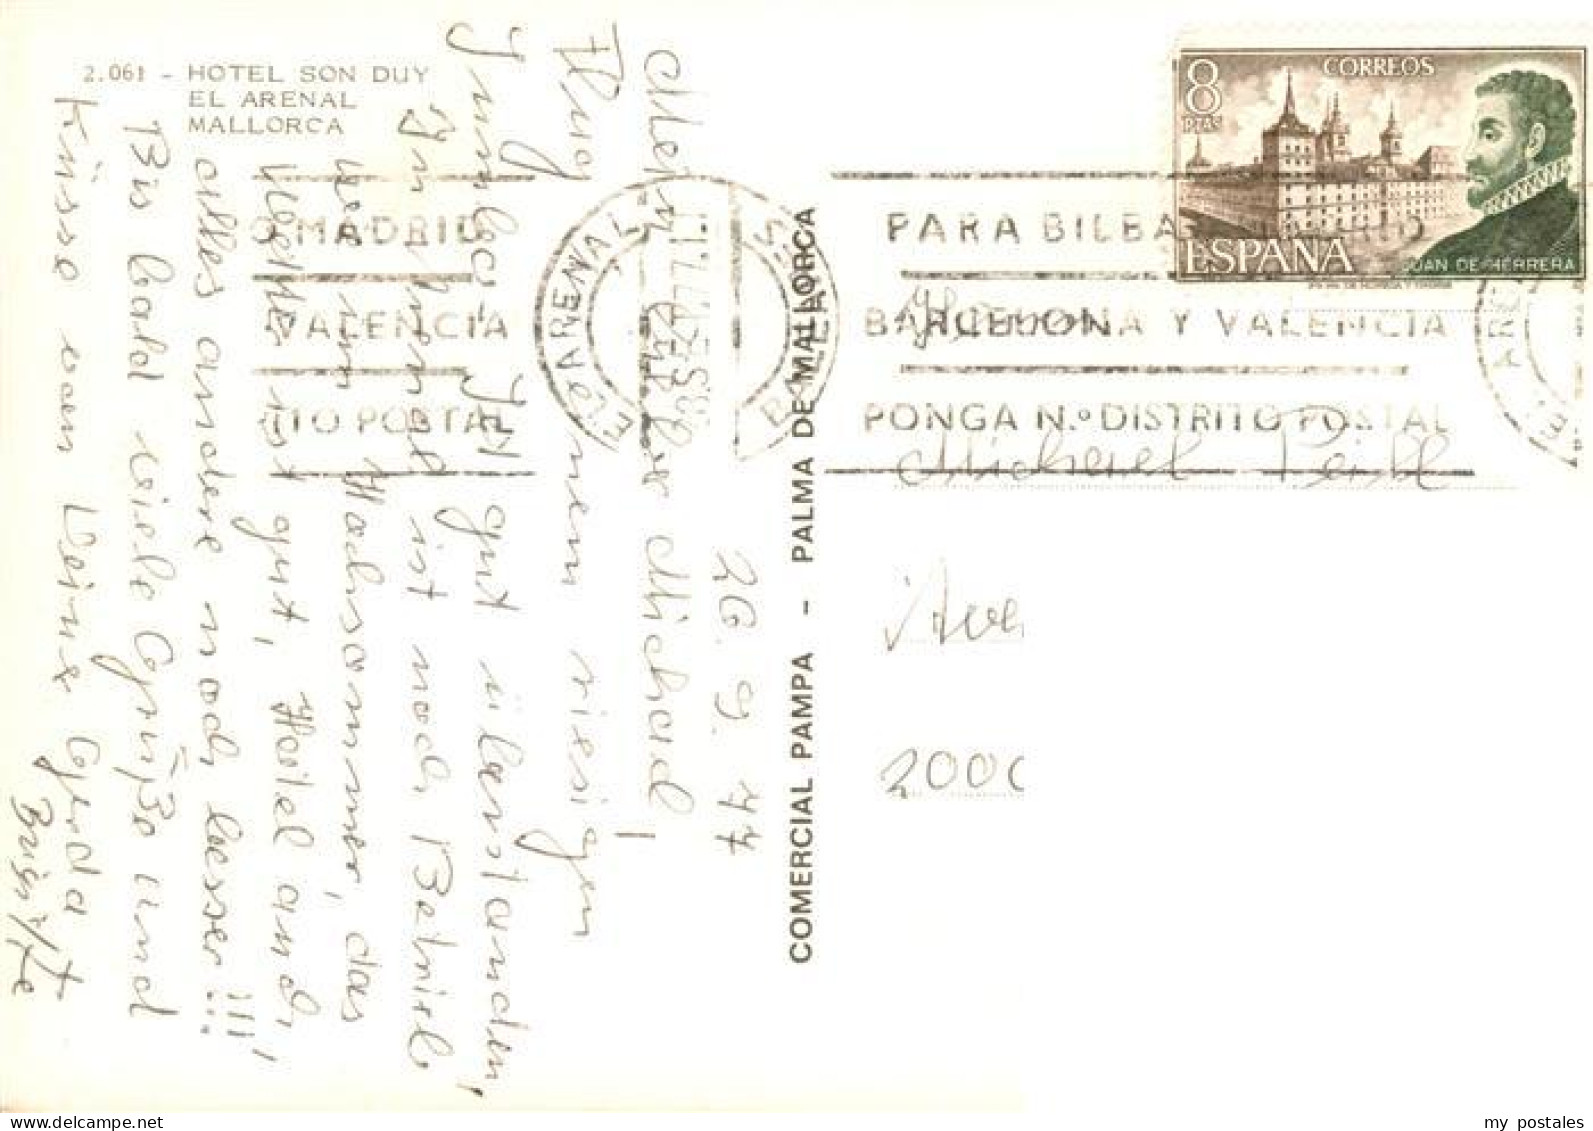 2.061 - HOTEL SON DUY
EL ARENAL
MALLORCA
26.9.77
Mein lieber Michael,
Flug
einem riesigen
Jumbo-Jet gut überstanden,
In Arenal ist noch Betrieb
wie im Hochsommer, das
Wetter ist gut, Hotel auch,
alles andere noch besser!!!
Bis bald viele Grüße und
Küsse von Deine Gerda +
Brigitte
COMERCIAL PAMPA - PALMA DE MALLORCA
8
PTAS
CORREOS
ESPAÑA
JUAN DE HERRERA
MADRID
VALENCIA
POSTAL
EL ARENAL
PARA BILBA
BARCELONA Y VALENCIA
PONGA N.º DISTRITO POSTAL
Herrn
Michael
2000
my postales